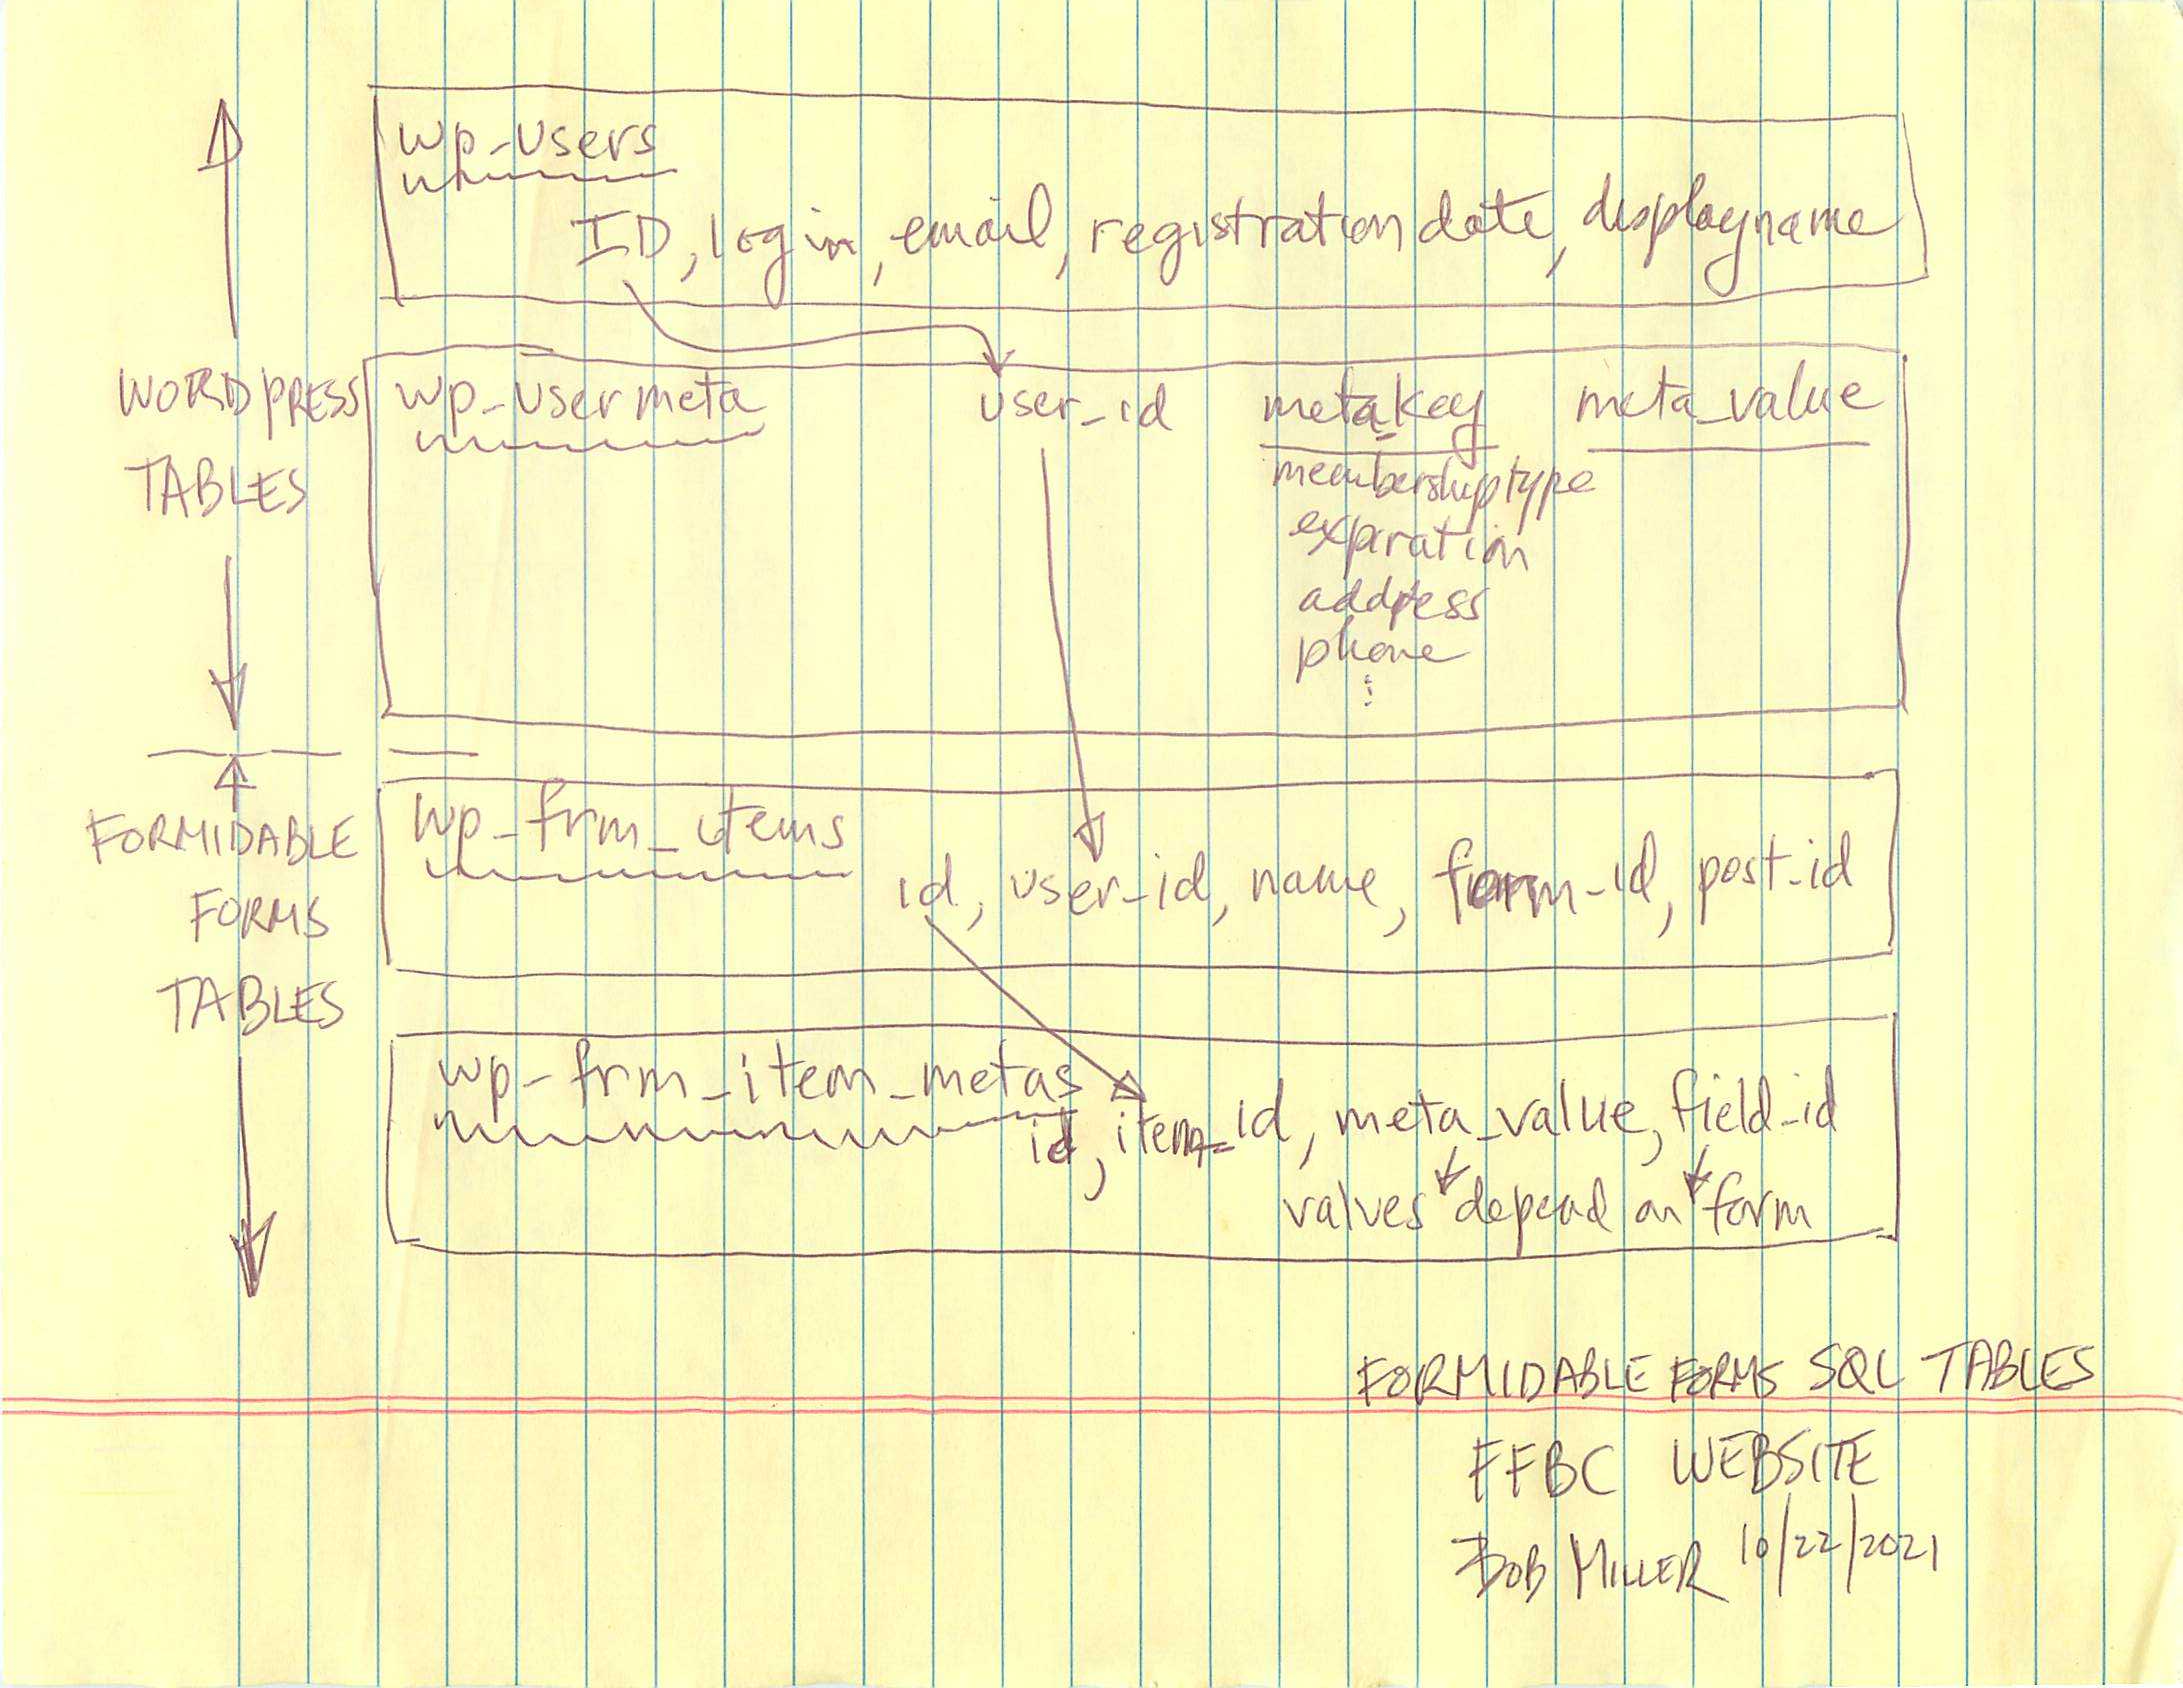 wp_users
ID, login, email, registration date, displayname
WORDPRESS
TABLES
wp_usermeta user_id meta_key meta_value
membershiptype
expiration
address
phone
⋮
FORMIDABLE
FORMS
TABLES
wp_frm_items
id, user_id, name, form_id, post_id
wp_frm_item_metas
id, item_id, meta_value, field_id
values depend on form
FORMIDABLE FORMS SQL TABLES
FFBC WEBSITE
BOB MILLER 10/22/2021